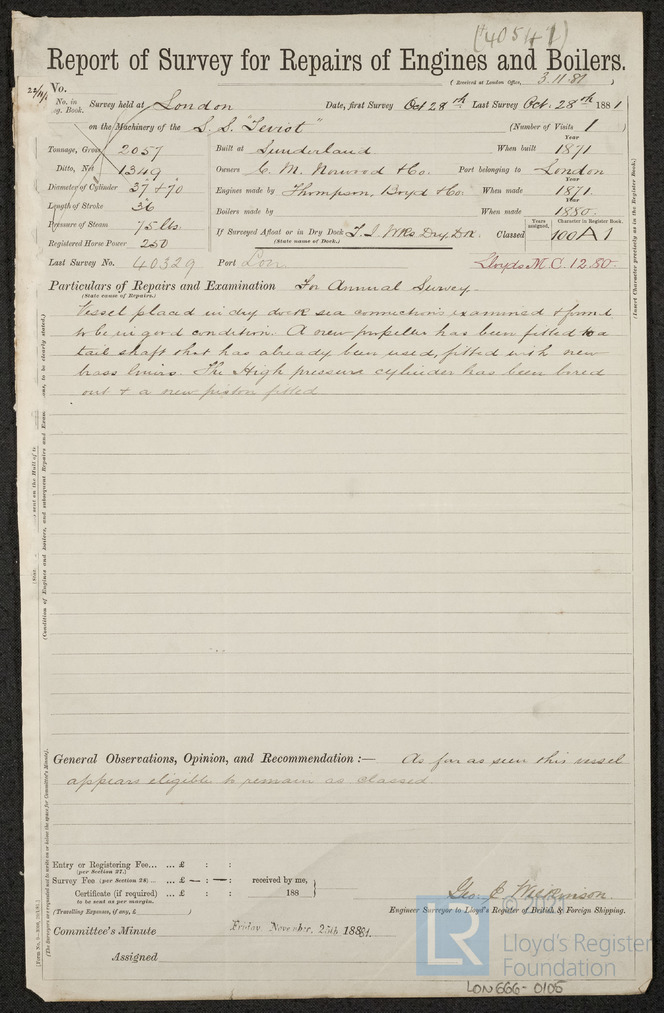 (40541)
Report of Survey for Repairs of Engines and Boilers.
(Received at London Office, 3.11.81)
No.
No. in Reg. Book. Survey held at London Date, first Survey Oct 28th Last Survey Oct. 28th 1881
on the Machinery of the S.S. "Teviot" (Number of Visits 1)
Tonnage, Gross 2057 Built at Sunderland When built Year 1871
Ditto, Net 1349 Owners C. M. Norwood & Co. Port belonging to London
Diameter of Cylinder 37" & 70 Engines made by Thompson, Boyd & Co. When made Year 1871
Length of Stroke 36 Boilers made by When made Year 1880
Pressure of Steam 75 lbs. If Surveyed Afloat or in Dry Dock T. I. Wks Dry Dk. Classed Years assigned. Character in Register Book. 100 A 1
(State name of Dock.)
Registered Horse Power 250
Last Survey No. 40329 Port Lon Lloyds M.C. 12.80.
Particulars of Repairs and Examination For Annual Survey.
(State cause of Repairs.)
Vessel placed in dry dock sea connections examined & found
to be in good condition. A new propeller has been fitted to a
tail shaft that has already been used, fitted with new
brass liners. The High pressure cylinder has been bored
out & a new piston fitted
(Insert Character precisely as in the Register Book.)
(Condition of Engines and Boilers, and subsequent Repairs and Exam
to be clearly stated.)
General Observations, Opinion, and Recommendation :— As far as seen this vessel
appears eligible to remain as classed
Entry or Registering Fee... ... £ : :
(per Section 27.)
Survey Fee (per Section 28) ... ... £ — : — : received by me,
Certificate (if required) ... £ : : 188
to be sent as per margin.
(Travelling Expenses, if any, £ )
Geo. C. Wilkinson.
Engineer Surveyor to Lloyd's Register of British & Foreign Shipping.
Committee's Minute Friday, November, 25th, 1881.
Assigned
LR
Lloyd's Register
Foundation
LON666-0105